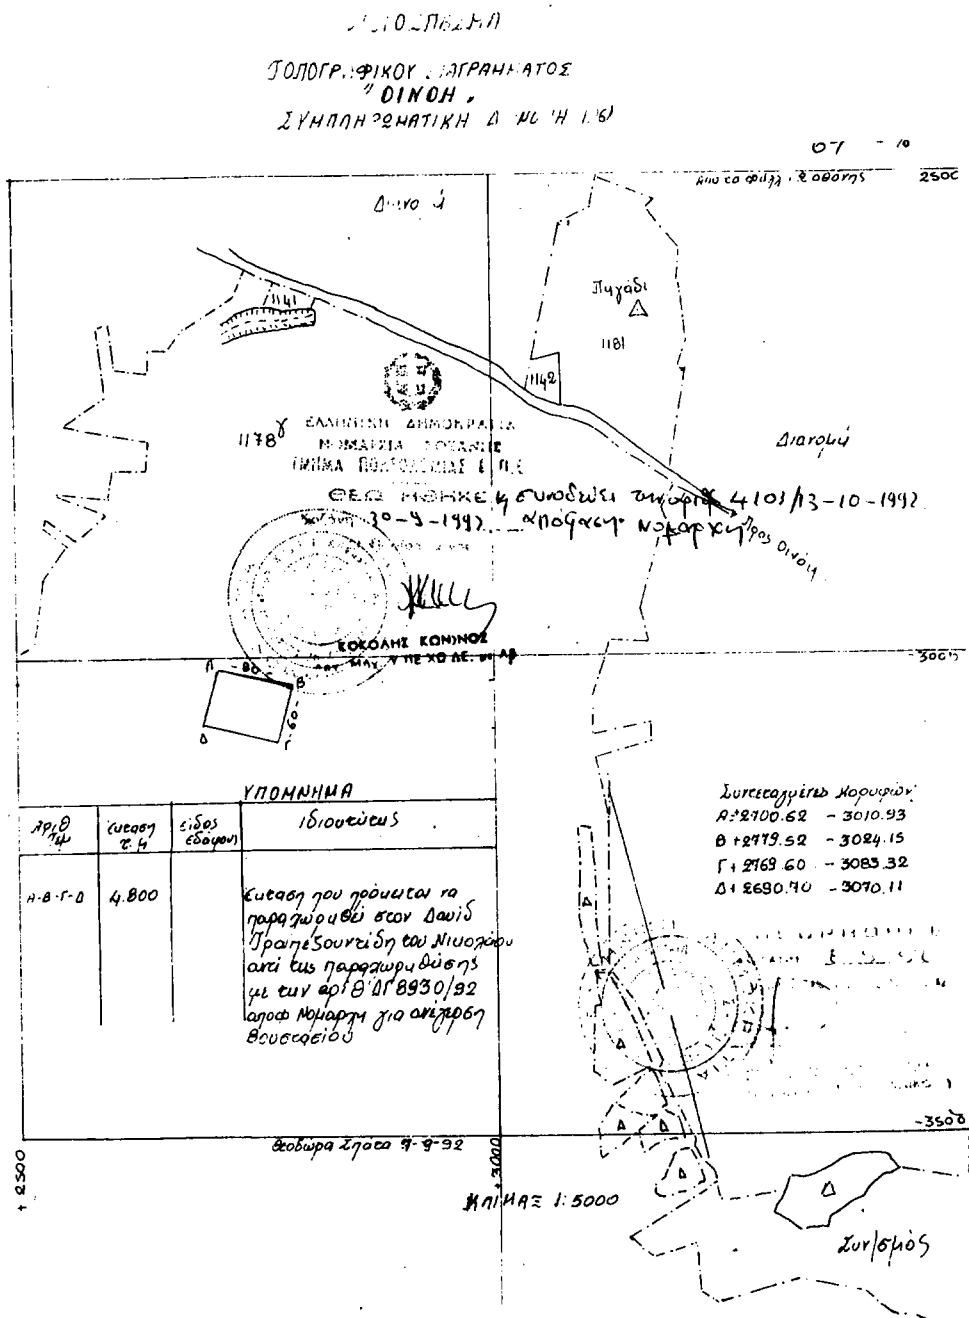 ΤΟΠΟΓΡΑΦΙΚΟΥ ΔΙΑΓΡΑΜΜΑΤΟΣ
"ΟΙΝΟΗ"
ΣΥΜΠΛΗΡΩΜΑΤΙΚΗ
07 - 10
2500
Πηγάδι
1141
1181
1142
1178 γ
ΕΛΛΗΝΙΚΗ ΔΗΜΟΚΡΑΤΙΑ
ΝΟΜΑΡΧΙΑ ΚΟΖΑΝΗΣ
ΤΜΗΜΑ ΠΟΛΕΟΔΟΜΙΑΣ & Π.Ε
Διανομή
ΘΕΩΡΗΘΗΚΕ η συνοδεύει την υπ' 4101/13-10-1992
30-9-1992 απόφαση Νομάρχη
Προς Οινόη
ΚΟΚΟΛΗΣ ΚΩΝ/ΝΟΣ
-3000
Α - 80 - Β
- 60 -
Δ Γ
ΥΠΟΜΝΗΜΑ
Αριθ τμ
έκταση τ. μ
είδος εδάφους
ιδιοκτίτης
Α-Β-Γ-Δ 4.800
έκταση που πρόκειται να
παραχωρηθεί στον Δαυίδ
Τραπεζουντίδη του Νικολάου
αντί της παραχωρηθείσης
με την αριθ ΔΓ 8930/92
αποφ Νομάρχη για ανέγερση
Βουστασίου
Συντεταγμένες Κορυφών
Α+2700.62 - 3010.93
Β+2779.52 - 3024.15
Γ+2769.60 - 3083.32
Δ+2690.70 - 3070.11
Δ
Δ
Δ
Δ
Δ
Δ
-3500
Θεοδώρα Σπάτα 9-9-92
+ 2500
+ 3000
ΚΛΙΜΑΞ 1:5000
Συν/σμός